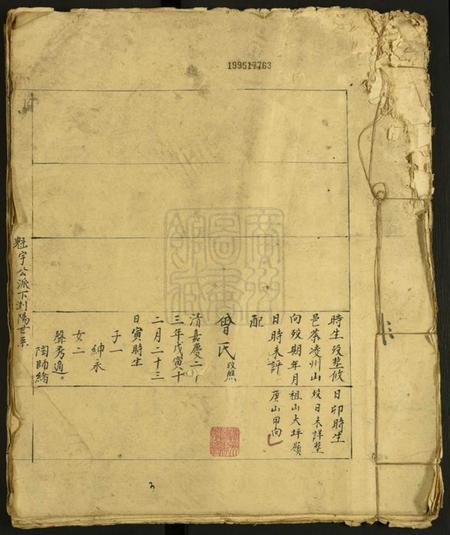 199517763
時生歿塟攸
邑茶凌州山
向歿期年月
日時未詳
日卯時生
歿日未詳塟
祖山大坪嶺
庚山甲向
配
曾氏歿熊
清嘉慶二十
三年戊寅十
二月二十三
日寅時生
子一
紳承
女二
聲秀適
陶帥緒
魁宇公派下瀏陽世系
3